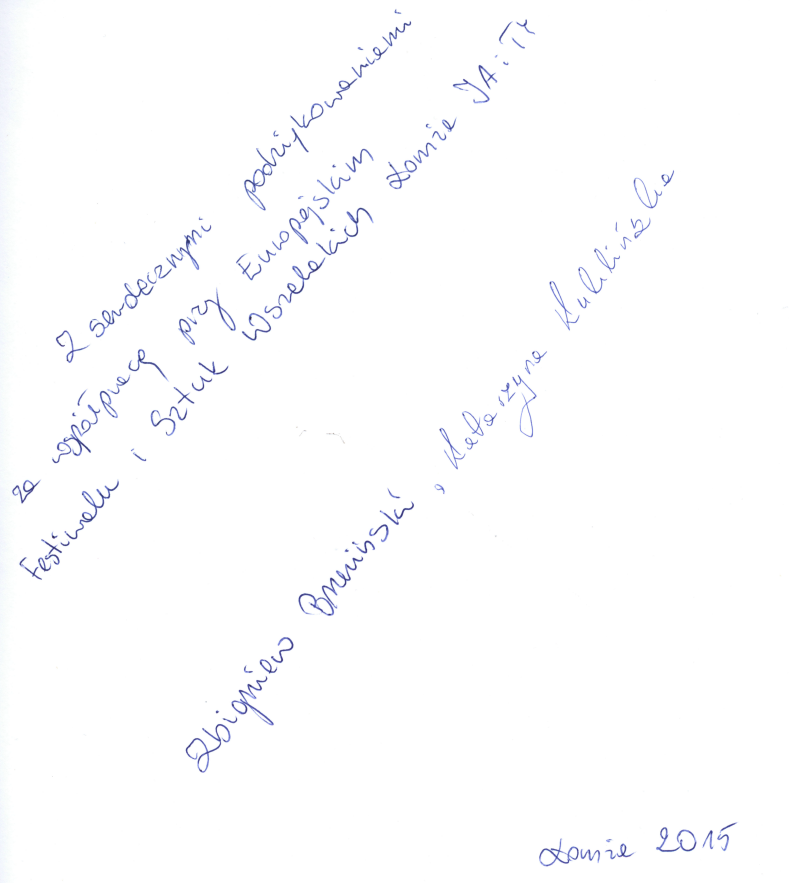 Z serdecznymi podziękowaniami
za współpracę przy Europejskim
Festiwalu i Sztuk Wszelakich Łomża JA i TY
Zbigniew Brzeziński, Katarzyna Kulilińska
Łomża 2015